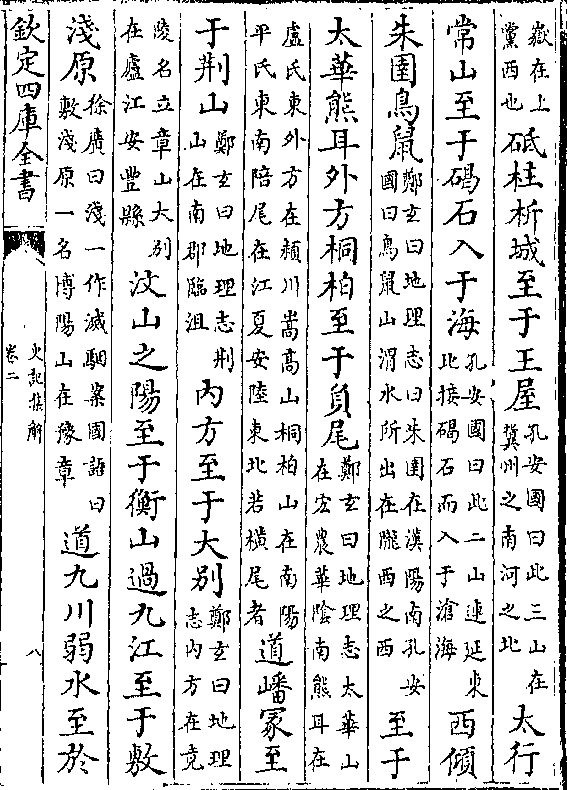 嶽在上黨西也砥柱析城至于王屋孔安國曰此三山在冀州之南河之北太行
常山至于碣石入于海孔安國曰此二山連延東北接碣石而入于滄海西傾
朱圉鳥鼠鄭玄曰地理志曰朱圉在漢陽南孔安國曰鳥鼠山渭水所出在隴西之西至于
太華熊耳外方桐柏至于負尾鄭玄曰地理志太華山在宏農華陰南熊耳在
盧氏東外方在頴川嵩高山桐柏山在南陽平氏東南陪尾在江夏安陸東北若橫尾者道嶓冢至
于荆山鄭玄曰地理志荆山在南郡臨沮內方至于大别鄭玄曰地理志內方在竟
陵名立章山大别在廬江安豐縣汶山之陽至于衡山過九江至于敷
淺原徐廣曰淺一作滅駰案國語曰敷淺原一名博陽山在豫章道九川弱水至於
欽定四庫全書
史記集解
卷二
八